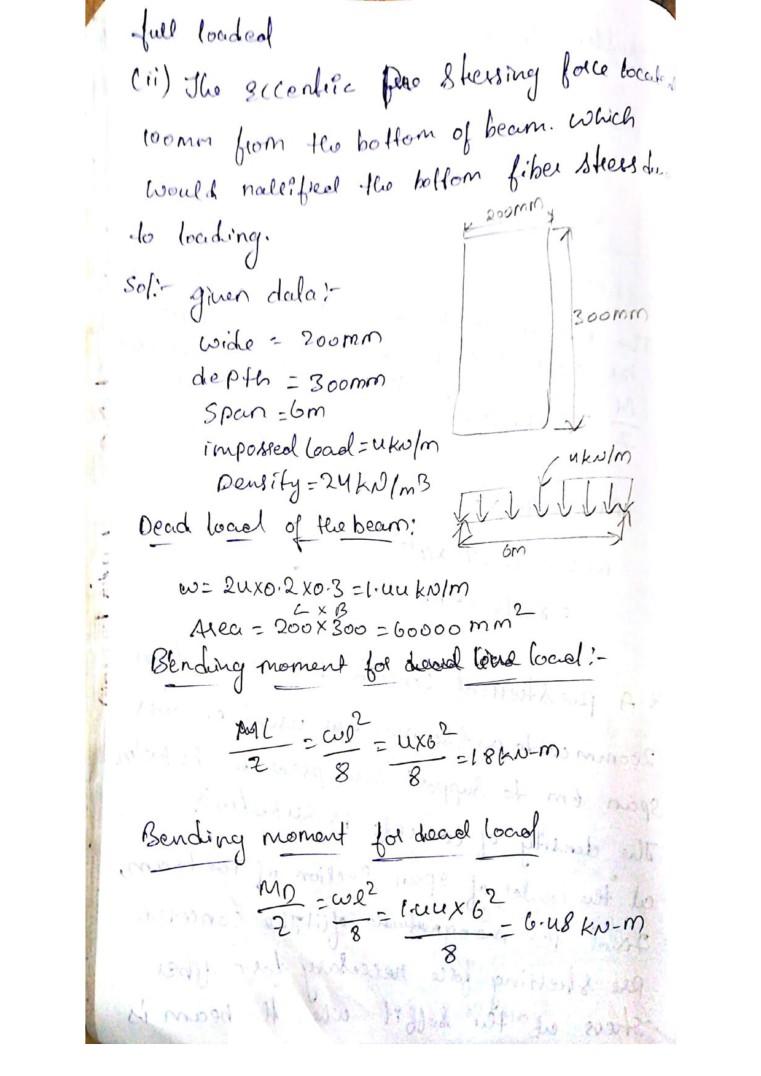 full loaded
(ii) The eccentric Pre stressing force locat
100mm from the bottom of beam. which
would nallified the bottom fiber stress du
to loading.
200mm
Sol:- given data:-
wide = 200mm
300mm
depth = 300mm
span = 6m
impossed load = 4kN/m
4kN/m
Density = 24kN/m3
Dead load of the beam:
6m
w = 24x0.2x0.3 = 1.44 kN/m
L x B
Area = 200x300 = 60000 mm2
Bending moment for load:-
ML/Z = wl2/8 = 4x62/8 = 18kN-m
Bending moment for dead load
MD/Z = wl2/8 = 1.44x62/8 = 6.48 kN-m